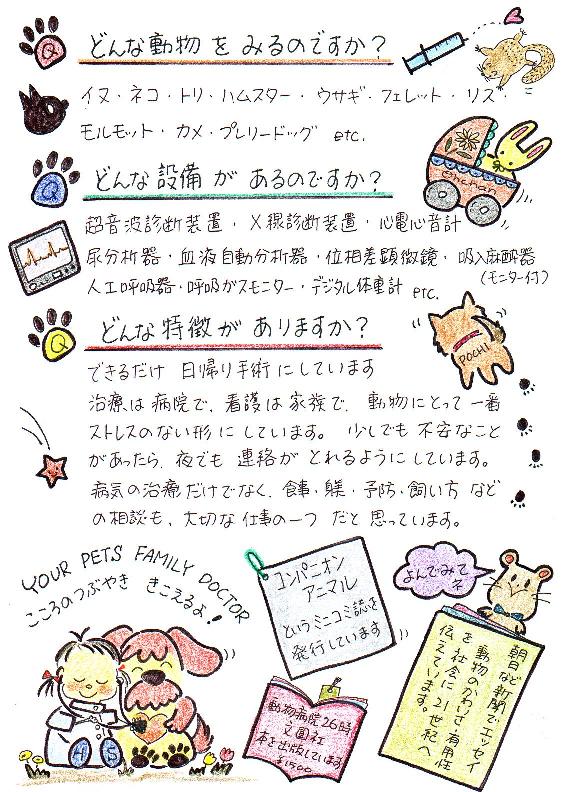 Q どんな動物をみるのですか?
イヌ・ネコ・トリ・ハムスター・ウサギ・フェレット・リス・
モルモット・カメ・プレリードッグ etc.
Q どんな設備があるのですか?
超音波診断装置・X線診断装置・心電心音計
尿分析器・血液自動分析器・位相差顕微鏡・吸入麻酔器
(モニター付)
人工呼吸器・呼吸ガスモニター・デジタル体重計 etc.
Q どんな特徴がありますか?
できるだけ 日帰り手術にしています
治療は病院で、看護は家族で、動物にとって一番
ストレスのない形にしています。少しでも不安なこと
があったら、夜でも連絡がとれるようにしています。
病気の治療だけでなく、食事・躾・予防・飼い方など
の相談も、大切な仕事の一つだと思っています。
Chanchan
POCHI
YOUR PETS FAMILY DOCTOR
こころのつぶやき きこえるよ!
H S
コンパニオン
アニマル
というミニコミ誌を
発行しています
動物病院26時
文園社
本を出版しています
¥1500
よんでみてネ
朝日など新聞でエッセイ
動物のかわいさ、有用性
を社会に21世紀へ
伝えています。